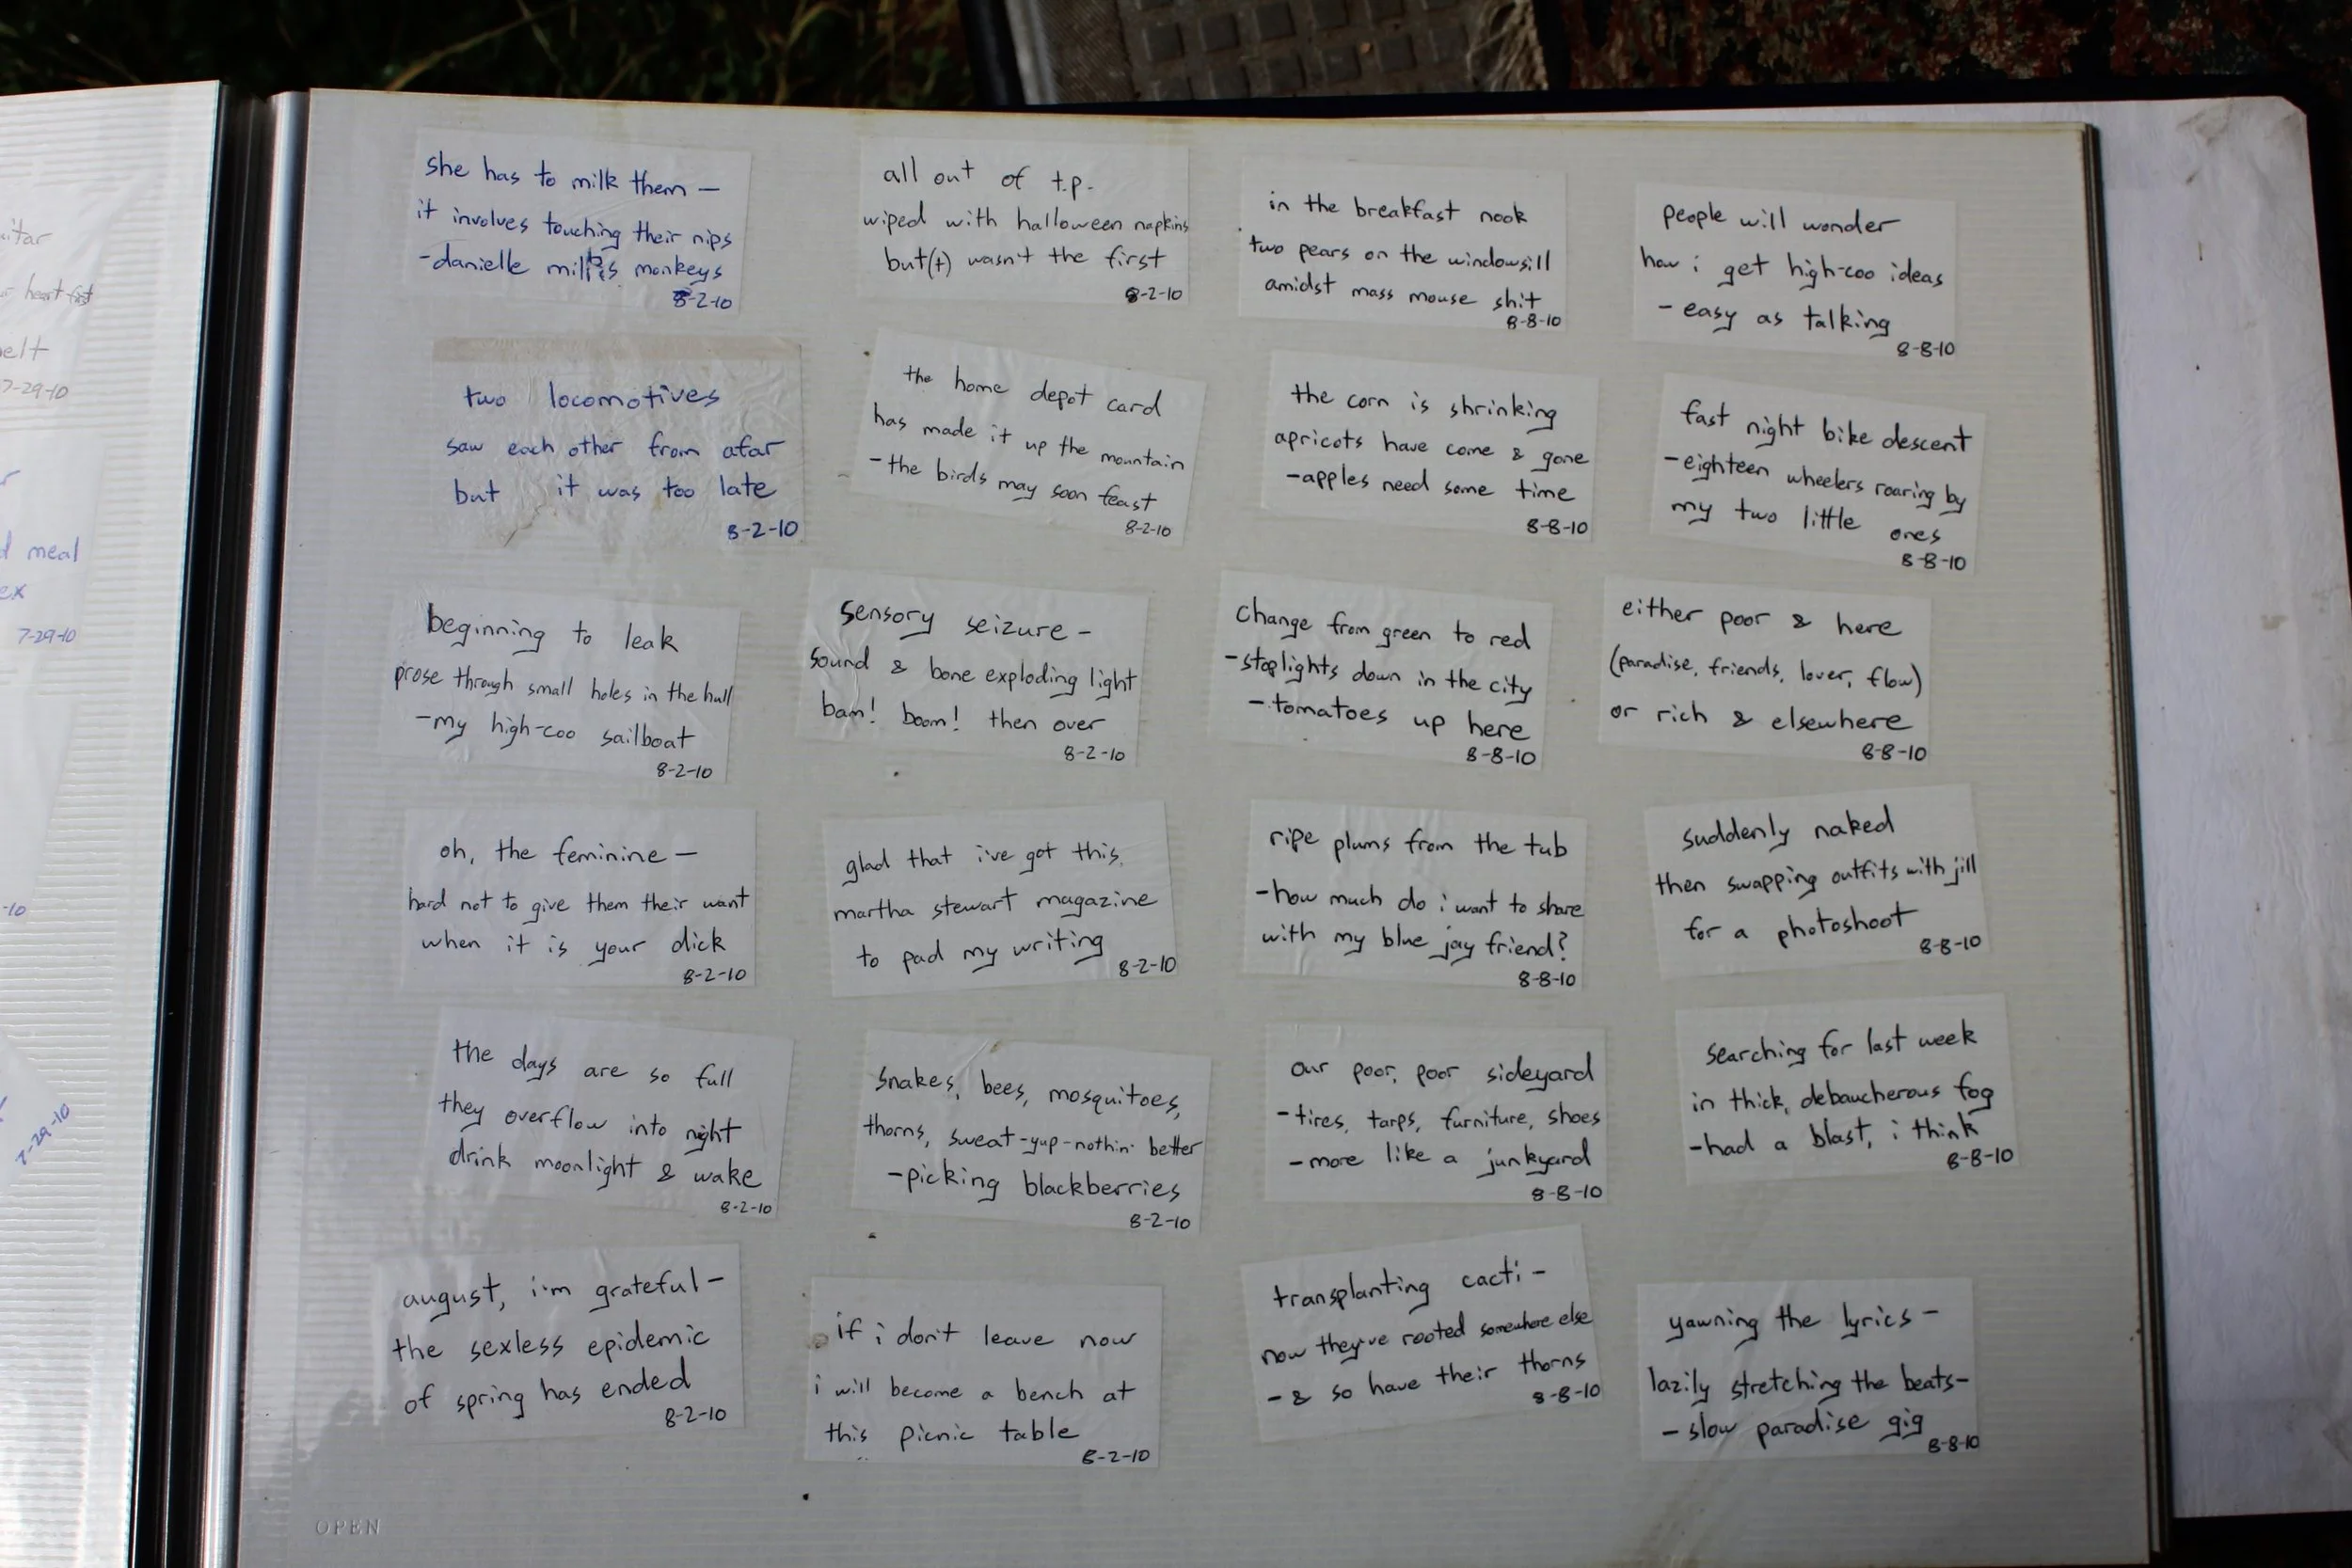 itar
heart fist
elt
7-29-10
meal
ex
7-29-10
-10
7-29-10
she has to milk them –
it involves touching their nips
-danielle milks monkeys
8-2-10
two locomotives
saw each other from afar
but it was too late
8-2-10
beginning to leak
prose through small holes in the hull
-my high-coo sailboat
8-2-10
oh, the feminine –
hard not to give them their want
when it is your dick
8-2-10
the days are so full
they overflow into night
drink moonlight & wake
8-2-10
august, i'm grateful –
the sexless epidemic
of spring has ended
8-2-10
all out of t.p.
wiped with halloween napkins
but(t) wasn't the first
8-2-10
the home depot card
has made it up the mountain
-the birds may soon feast
8-2-10
sensory seizure –
sound & bone exploding light
bam! boom! then over
8-2-10
glad that i've got this
martha stewart magazine
to pad my writing
8-2-10
snakes, bees, mosquitoes,
thorns, sweat-yup-nothin' better
-picking blackberries
8-2-10
if i don't leave now
i will become a bench at
this picnic table
8-2-10
in the breakfast nook
two pears on the windowsill
amidst mass mouse shit
8-8-10
the corn is shrinking
apricots have come & gone
-apples need some time
8-8-10
change from green to red
-stoplights down in the city
-tomatoes up here
8-8-10
ripe plums from the tub
-how much do i want to share
with my blue jay friend?
8-8-10
our poor, poor sideyard
-tires, tarps, furniture, shoes
-more like a junkyard
8-8-10
transplanting cacti –
now they've rooted somewhere else
- & so have their thorns
8-8-10
people will wonder
how i get high-coo ideas
- easy as talking
8-8-10
fast night bike descent
-eighteen wheelers roaring by
my two little ones
8-8-10
either poor & here
(paradise, friends, lover, flow)
or rich & elsewhere
8-8-10
suddenly naked
then swapping outfits with jill
for a photoshoot
8-8-10
searching for last week
in thick, debaucherous fog
-had a blast, i think
8-8-10
yawning the lyrics –
lazily stretching the beats–
- slow paradise gig
8-8-10
OPEN